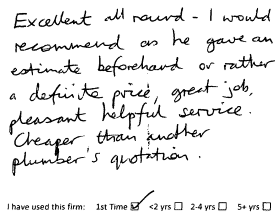 Excellent all round - I would
recommend as he gave an
estimate beforehand or rather
a definite price, great job,
pleasant helpful service.
Cheaper than another
plumber's quotation.
I have used this firm: 1st Time ☑ <2 yrs ☐ 2-4 yrs ☐ 5+ yrs ☐